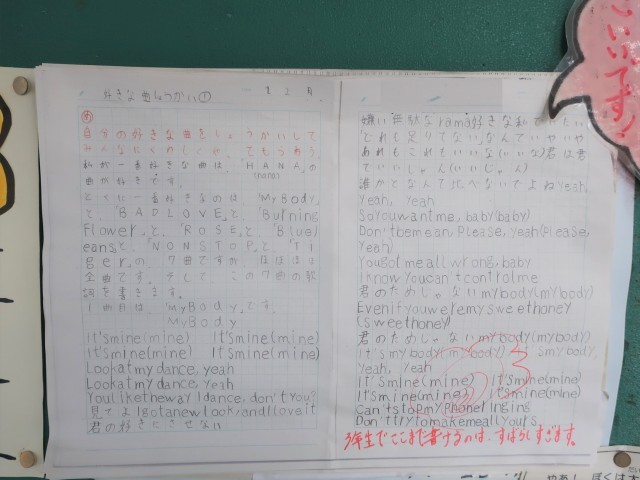 好きな曲しょうかい①
め
自分の好きな曲をしょうかいして
みんなにくわしく
てもらおう。
私が一番好きな曲は、「HANA」の
(hana)
曲が好きです。
とくに一番好きなのは、「MyBody」
と、「BADLOVE」と、「Burning
Flower」と、「ROSE」と、「Bluej
eans」と、「NONSTOP」と、「Ti
ger」の、7曲ですが、ほぼほぼ
全曲です。そして、この7曲の歌
詞を書きます。
1曲目は、「MyBody」です。
MyBody
It'smine(mine) It'smine(mine)
It'smine(mine) It'smine(mine)
Lookatmydance, yeah
Lookatmydance, yeah
YoulikethewayIdance, don'tyou?
見てよIgotanewlook,andIloveit
君の好きにさせない
嫌い 無駄なrama好きな私でいたい
「どれも足りてない」なんていやいや
あれもこれもいいな(いいな)君は君
でいいじゃん(いいじゃん)
誰かとなんて比べないでよねyeah,
Yeah, Yeah
Soyouwantme, baby(baby)
Don'tbemean, Please, yeah(Please,
Yeah)
Yougotmeallwrong, baby
Iknowyoucan'tcontrolme
君のためじゃないmybody(mybody)
Evenifyouwe'remysweethoney
(Sweethoney)
君のためじゃないmybody(mybody)
It'smybody(mybody) It'smybody,
Yeah, Yeah
It'smine(mine) It'smine(mine)
It'smine(mine) It'smine(mine)
Can'tstopmyPhoneringing
Don'ttrytomakemeallyours
3年生でここまで書けるのは、すばらしすぎます。
いいです!